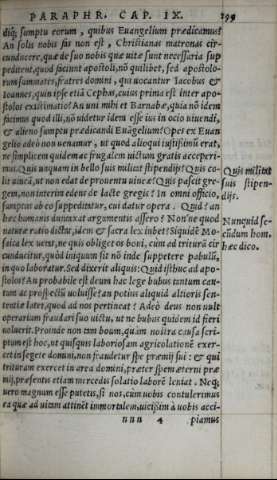 PARAPHR. CAP. IX. 299
diq; sumptu eorum, quibus Euangelium prædicamus?
An solis nobis fas non est, Christianas matronas cir-
cunducere, quæ de suo nobis quæ uitæ sunt necessaria sup
peditent, quod faciunt apostoli, nõ quilibet, sed apostolo-
rum summates, fratres domini, qui uocantur Iacobus &
Ioannes, quin ipse etiã Cephas, cuius prima est inter apo-
stolos existimatio? An uni mihi et Barnabæ, quia nõ idem
facimus quod illi, nõ uidetur idem esse ius in ocio uiuendi,
& alieno sumptu prædicandi Euãgelium? Opes ex Euan
gelio adeò non uenamur, ut quod alioqui iustissimũ erat,
ne simplicem quidem ac frugalem uictum gratis acceperi-
mus. Quis unquam in bello suis militat stipendijs? Quis co
lit uineã, ut non edat de prouentu uineæ? Quis pascit gre-
gem, non interim edens de lacte gregis? In omni officio,
sumptus ab eo suppeditantur, cui datur opera. Quid? an
hæc humanis duntaxat argumentis assero? Non'ne quod
naturæ ratio dictat, idem & sacra lex iubet? Siquidẽ Mo-
saica lex uetat, ne quis obliget os boui, cùm ad triturã cir
cunducitur, quòd iniquum sit nõ inde suppetere pabulũ,
in quo laboratur. Sed dixerit aliquis: Quid isthuc ad apo-
stolos? An probabile est deum hac lege bubus tantum cau-
tum ac prospectũ uoluisse? an potius aliquid altioris sen-
tentiæ latet, quod ad nos pertineat? Adeò deus non uult
operarium fraudari suo uictu, ut ne bubus quidem id fieri
uoluerit. Proinde non tam boum, quàm nostra causa scri-
ptum est hoc, ut quisquis laboriosam agricolationẽ exer-
cet in segete domini, non fraudetur spe præmij sui: & qui
trituram exercet in area domini, præter spem æterni præ
mij, præsentis etiam mercedis solatio laborẽ leniat. Neq;
uero magnum esse putetis, si nos, cùm uobis contulerimus
ea quæ ad uitam attinẽt immortalem, uicissim à uobis acci-
nnn 4 piamus
Quis militat
suis stipen-
dijs.
Nunquid se-
cũdum hom.
hæc dico.